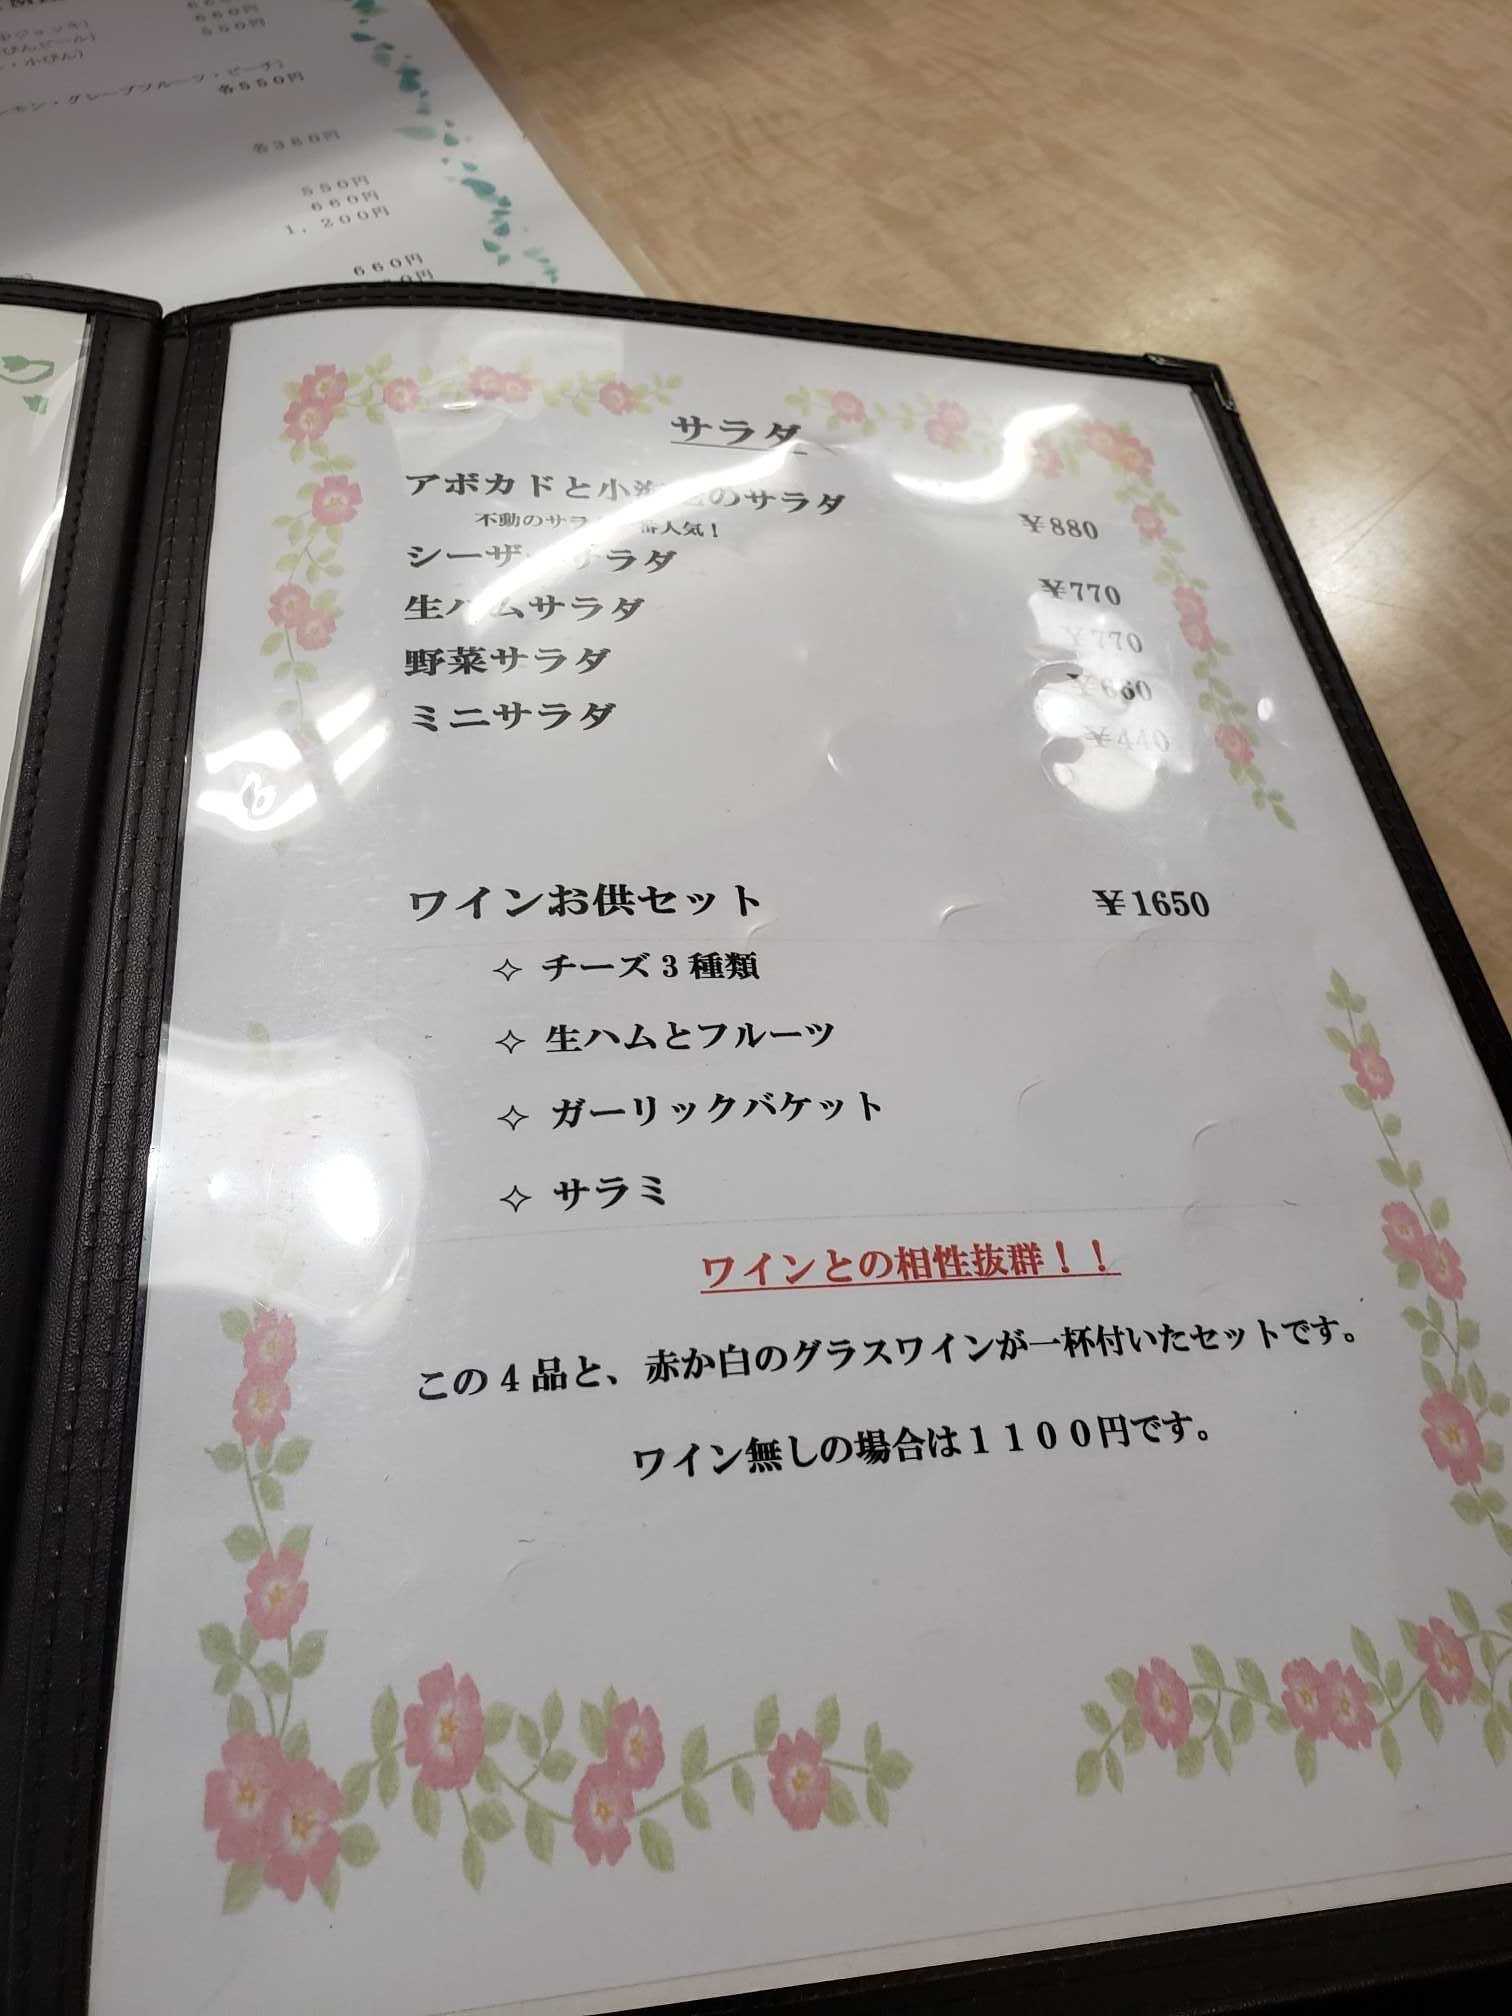 660円
550円
レモン・グレープフルーツ・ピーチ)
各550円
各380円
550円
660円
1,200円
660円
サラダ
アボカドと小海老のサラダ ¥880
不動のサラダ 番人気!
シーザーサラダ ¥770
生ハムサラダ ¥770
野菜サラダ ¥660
ミニサラダ ¥440
ワインお供セット ¥1650
✧ チーズ3種類
✧ 生ハムとフルーツ
✧ ガーリックバケット
✧ サラミ
ワインとの相性抜群!!
この4品と、赤か白のグラスワインが一杯付いたセットです。
ワイン無しの場合は1100円です。